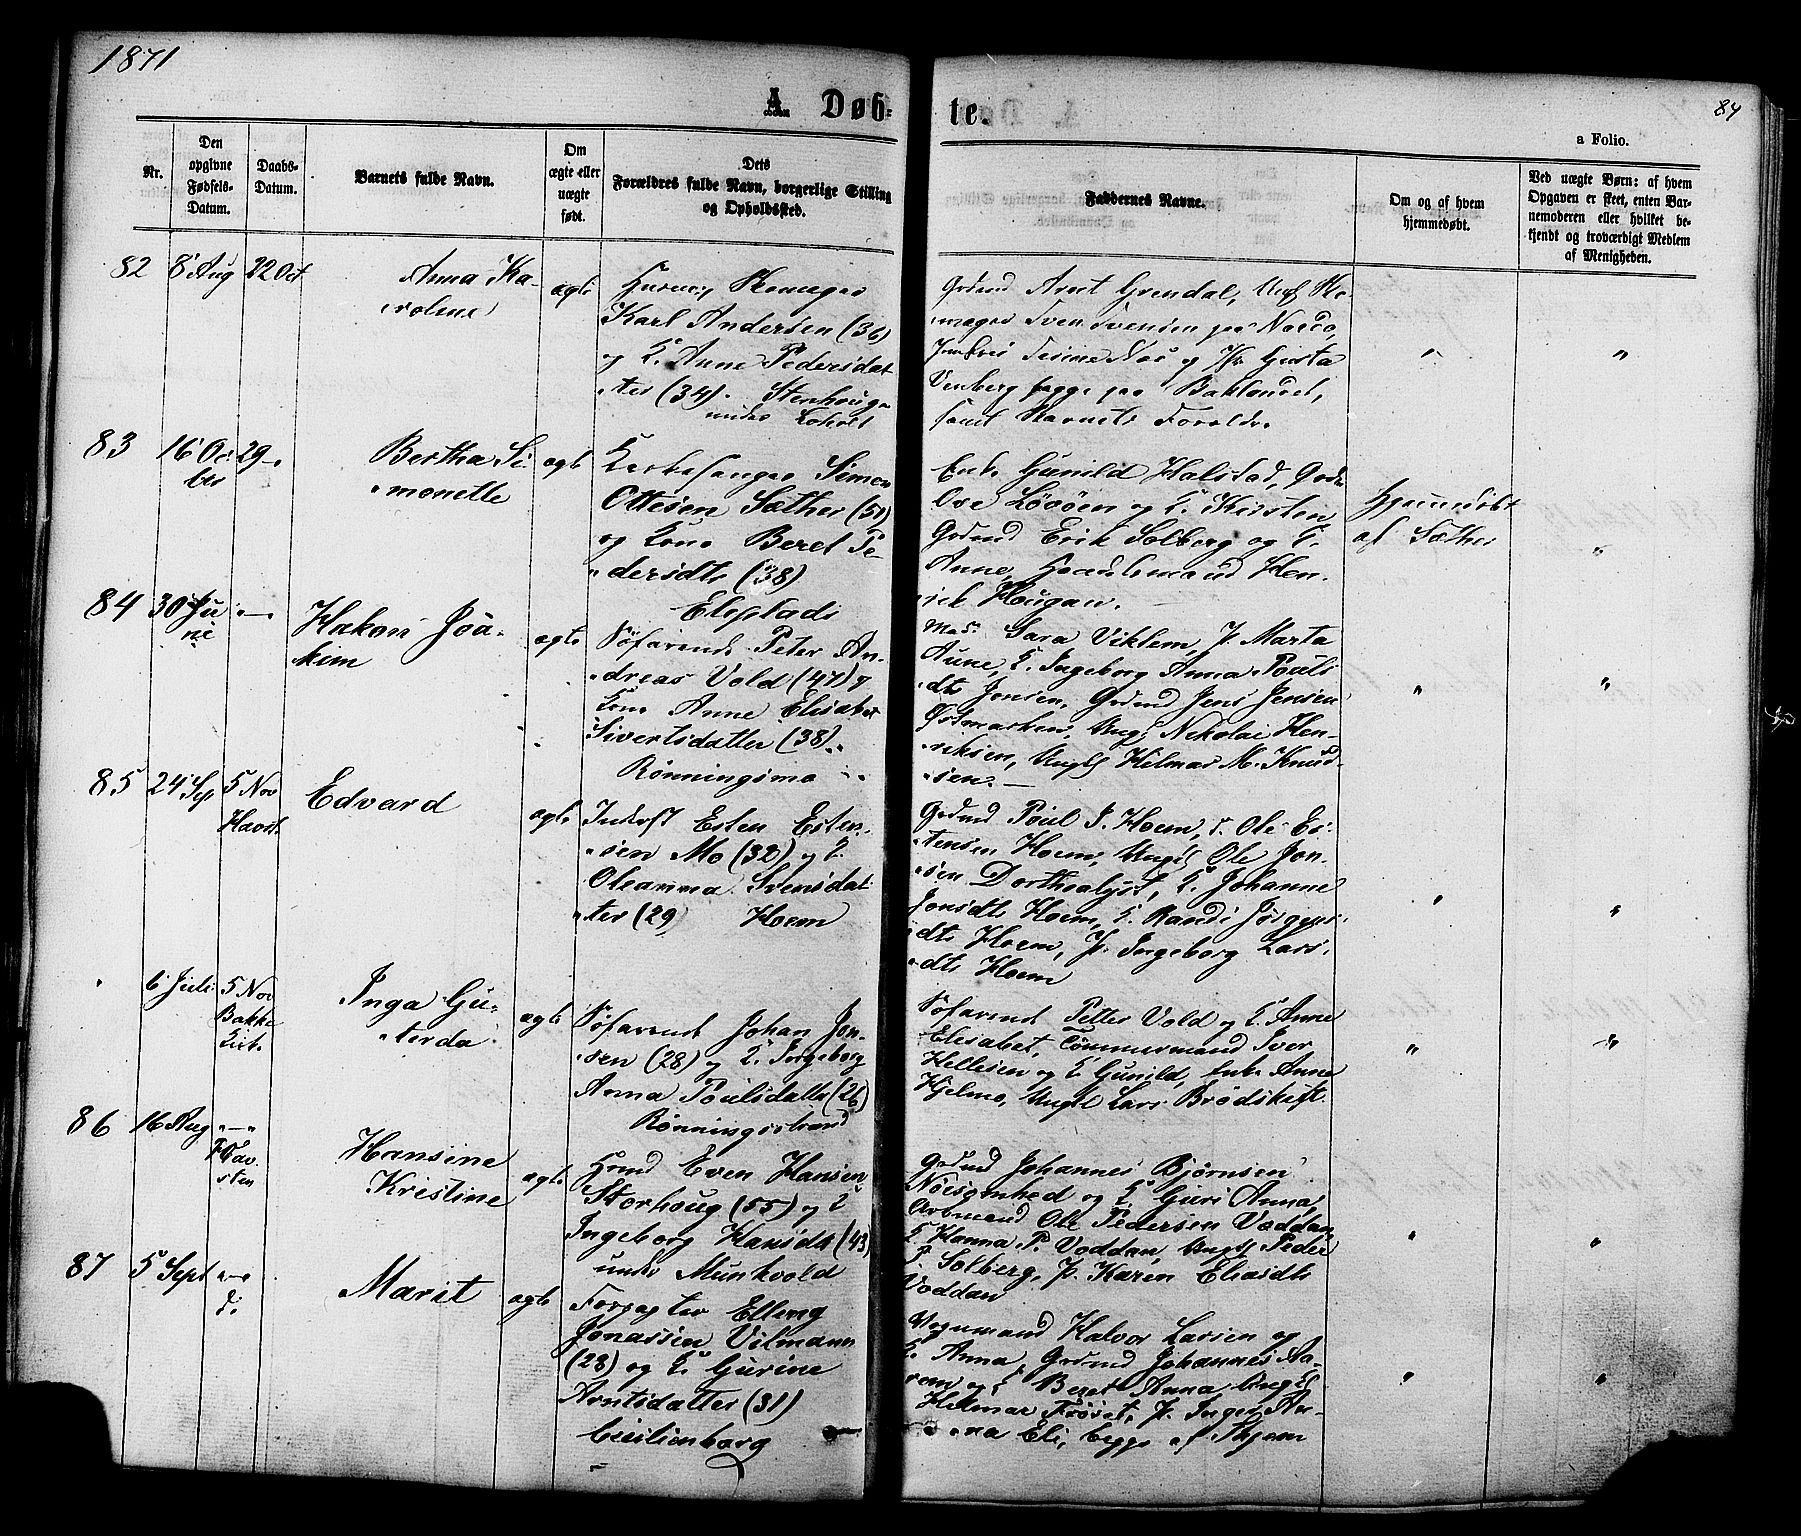 1871
84
A. Døb-
te.
a Folio.
Nr.
Den opgivne Fødsels-Datum.
Daabs-Datum.
Barnets fulde Navn.
Om ægte eller uægte født.
Dets Forældres fulde Navn, borgerlige Stilling og Opholdssted.
Faddernes Navne.
Om og af hvem hjemmedøbt.
Ved uægte Børn: af hvem Opgaven er skeet, enten Barnemoderen eller hvilket bekjendt og troværdigt Medlem af Menigheden.
82 8 Aug 22 Oct
Anna Ka-
roline
ægte
Karl Andersen (36)
og K. Anne Pedersdat-
ter (34).
under
Grdmd Arnt Grendal, Ungk
Sven Svensen paa
og Gusta
begge paa Baklandet,
samt Barnets Forældre.
83 16 Oc- 29 -
Bertha Si-
monette
ægte
Kirkesanger Simon
Ottesen Sæther (51)
og Kone Beret Pe-
dersdtr (38)
Enke Gunild Halstad,
og K. Kirsten
Grdmd Erik Solberg og K.
Anne, Hen-
rik Hougan.
Hjemmedøbt
af Sæther
84 30 Ju-
ni
Hakon Joa-
kim
ægte
Søfarende Peter An-
dreas Vold (47) og
Kone Anne Elisabet
Sivertsdatter (38)
Rønningsmo
Mad. Sara Viklem, P. Marta
Aune, K. Ingeborg Anna Pouls-
dtr Jonsen, Grdmd Jens Jensen
Østmarken, Ungk Nikolai Hen-
riksen, Ungk Hilmar M. Knud-
sen.
85 24 Sep 5 Nov
Edvard
ægte
Inderst Esten Esten-
sen Mo (32) og K.
Oleanna Svensdat-
ter (29) Hoem
Grdmd Poul J. Hoem, Ole Es-
tensen Hoem, Ungk Ole Jon-
sen Dorthealyst, K. Johanne
Jonsdtr Hoem, K. Randi Jørgens-
dtr Hoem, P. Ingeborg Lars-
dtr Hoem
6 Juli 5 Nov
Bakke
Kirke
Inga Gu-
rida
ægte
Søfarende Johan Jon-
sen (28) og K. Ingeborg
Anna Poulsdatter (26)
Rønningsstrand
Søfarende Petter Vold og K. Anne
Elisabet, Tømmermand Iver
Hellesen og K. Gunild, Enke Anne
Hjelmo, Ungk Lars
86 16 Aug
Hansine
Kristine
ægte
Even Hansen
Storhoug (55) og K
Ingeborg Hansdtr (43)
under Munkvold
Grdmd Johannes Bjørnsen
og K Guri Anna,
Arbmand Ole Pedersen Voddan
K. Hanna P. Voddan, Ungk Peder
P Solberg, P. Karen Eliasdtr
Voddan
87 5 Sept
Marit
ægte
Forpagter Elling
Jonassen Vilmann
(28) og K. Gurine
Arntsdatter (31)
Cecilienborg
Vognmand Halvor Larsen og
K. Anna, Grdmd Johannes
og K Beret Anna Ungk
Hilmar P. Inger An-
na Eli, begge af